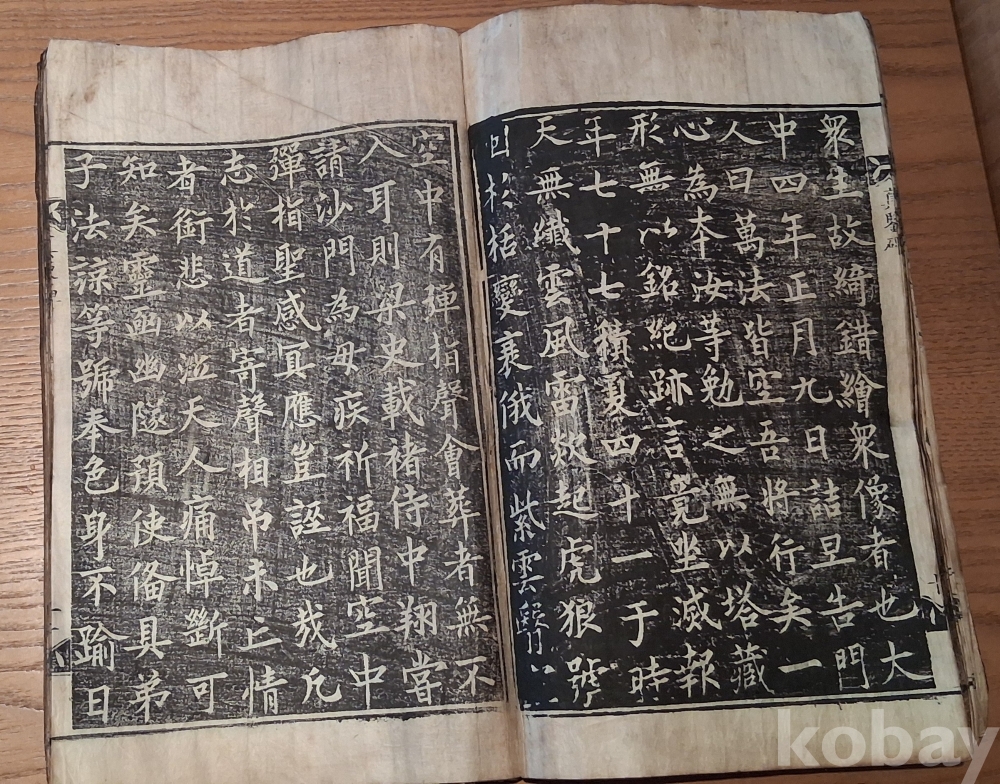 真鑒碑
衆生故綺錯繪衆像者也大
中四年正月九日詰旦告門
人曰萬法皆空吾將行矣一
心為本汝等勉之無以塔藏
形無以銘紀跡言竟坐滅報
年七十七積夏四十一于時
天無纖雲風雷欻起虎狼號
咽杉栝變衰俄而紫雲翳
空中有彈指聲會葬者無不
入耳則梁史載褚侍中翔嘗
請沙門為母疾祈福聞空中
彈指聖感冥應豈誣也哉凡
志於道者寄聲相吊未亡情
者銜悲以泣天人痛悼斷可
知矣靈函幽隧預使俻具弟
子法諒等號奉色身不踰日
kobay